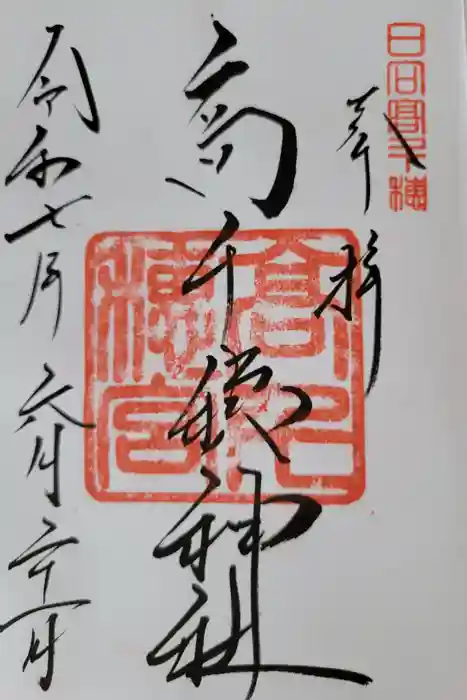 日向高千穂
奉拝
高千穂神社
高千穂宮
令和七年六月二十一日